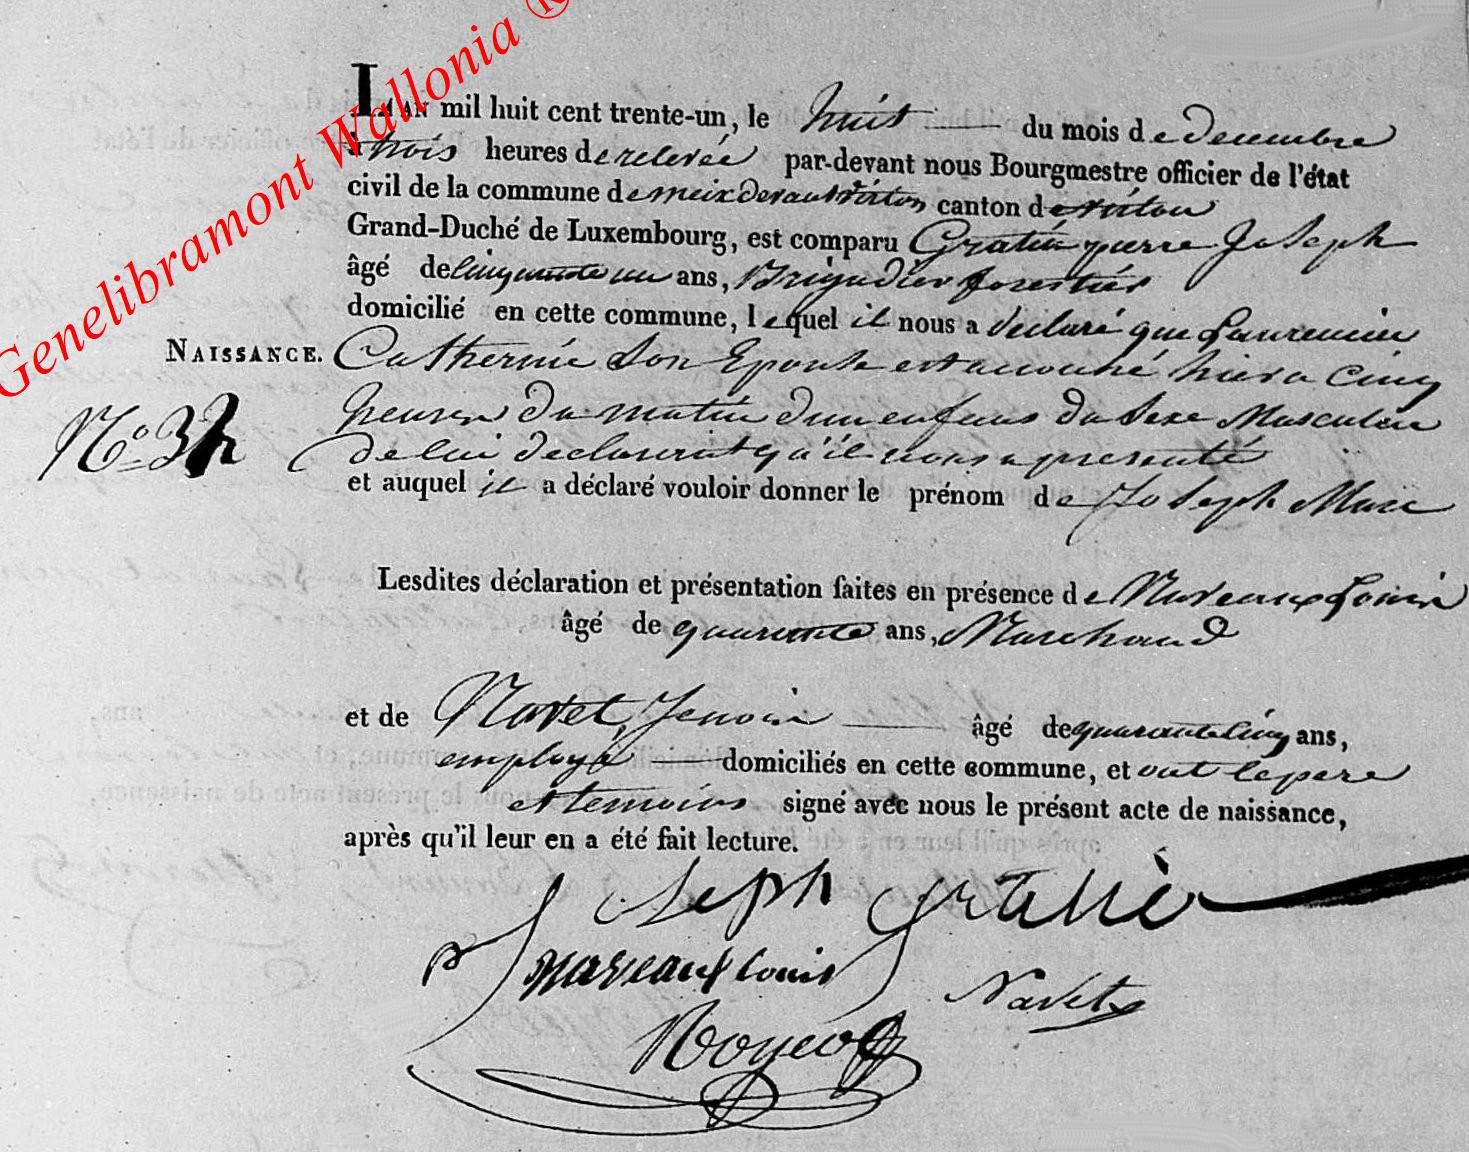 Genelibramont Wallonia ®
L'AN mil huit cent trente-un, le huit du mois de decembre
à trois heures de relevée par-devant nous Bourgmestre officier de l'état
civil de la commune de meix devant virton canton de virton
Grand-Duché de Luxembourg, est comparu Gratia pierre Joseph
âgé de cinquante un ans, Brigadier forestier
domicilié en cette commune, lequel il nous a declaré que
NAISSANCE. Catherine Son Epouse est accouché hier a cinq
heures du matin d'un enfans du Sexe Masculin
No 32
de lui declarant qu'il nous a presenté
et auquel il a déclaré vouloir donner le prénom de Joseph Marc
Lesdites déclaration et présentation faites en présence de Louis
âgé de quarante ans, Marchand
et de Navet, âgé de quarante cinq ans,
employé domiciliés en cette commune, et ont le pere
et temoins signé avec nous le présent acte de naissance,
après qu'il leur en a été fait lecture.
Joseph
Louis
Navet